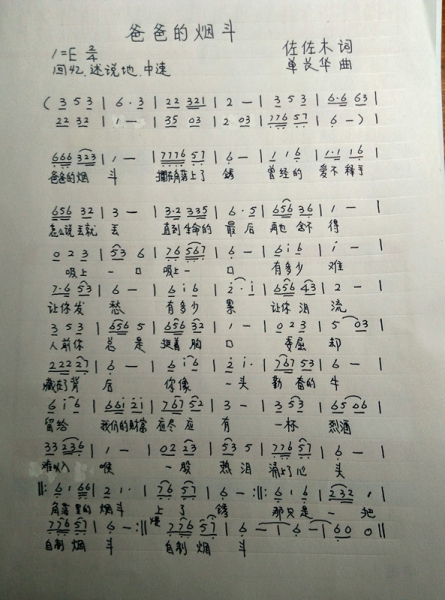 爸爸的烟斗
1=E 2/4 佐佐木 词
回忆,述说地,中速 单良华 曲
( 3 5 3 | 6 · 3 | 22 321 | 2 — | 3 5 3 | 6·6 63 |
22 32 | 1 — | 35 03 | 2 03 | 776 57 | 6 — )
666 323 | 1 — | 7776 57 | 6 — | 1 1 6 | 1·1 16 |
爸爸的烟 斗 搁在角落上了 锈 曾经的 爱不释手
656 32 | 3 — | 3·2 335 | 6 · 5 | 656 36 | 1 — |
怎么说丢就 丢 直到生命的 最 后 再也 舍不 得
0 2 3 | 53 6 | 76 567 | 6 — | 6 i 6 | i — |
吸上 一 口 吸上一 口 有多少 难
7·6 53 | 6 — | 6 i 6 | 2 · i | 656 43 | 2 — |
让你发 愁 有多少 累 让你 泪 流
3 5 3 | 656 5 | 656 32 | 1 — | 0 2 3 | 5 03 |
人前你 总 是 挺着 胸 口 委屈 却
222 27 | 6 — | 6 i 6 | 2 i · | 767 53 | 6 — |
藏在背 后 你像 一头 勤 奋的 牛
6 i 6 | 66i 2i | 767 52 | 3 — | 3 53 | 65 06 |
留给 我们的财富 应尽 应 有 一杯 烈酒
33 236 | 1 — | 02 23 | 53 5 | 776 57 | 6 — |
难以入 喉 一股 热泪 涌上了心 头
‖: 6 · 66 | 2 1 · | 76 57 | 6 — :‖: 6 1 6 | 232 1 |
角落里的 烟斗 上 了 锈 那只是 一 把
776 57 | 6 — :‖ 慢 776 57 | 6 — | 6 — | 6 — | 60 0 ‖
自制 烟 斗 自制 烟 斗